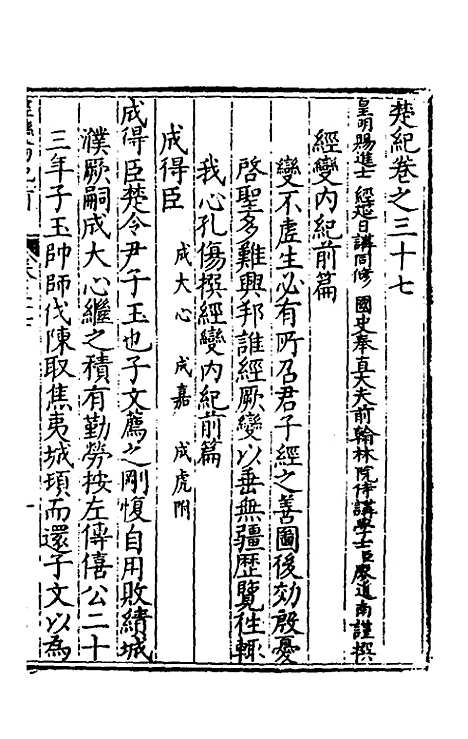 楚紀卷之三十七
皇明賜進士 經筵日講同修 國史奉直大夫前翰林院侍講學士臣廖道南謹撰
經變內紀前篇
變不虛生必有所召君子經之善圖後効殷憂
啓聖多難興邦誰經厥變以垂無疆歷覽徃輙
我心孔傷撰經變內紀前篇
成得臣 成大心 成嘉 成虎附
成得臣楚令尹子玉也子文薦之剛愎自用敗績城
濮厥嗣成大心繼之積有勤勞按左傳僖公二十
三年子玉帥師伐陳取焦夷城頓而還子文以為